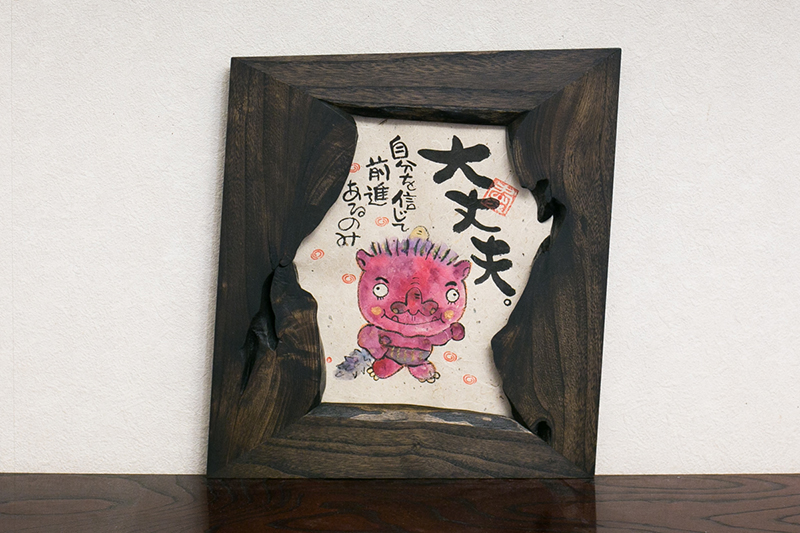 大丈夫。
自分を信じて
前進
あるのみ